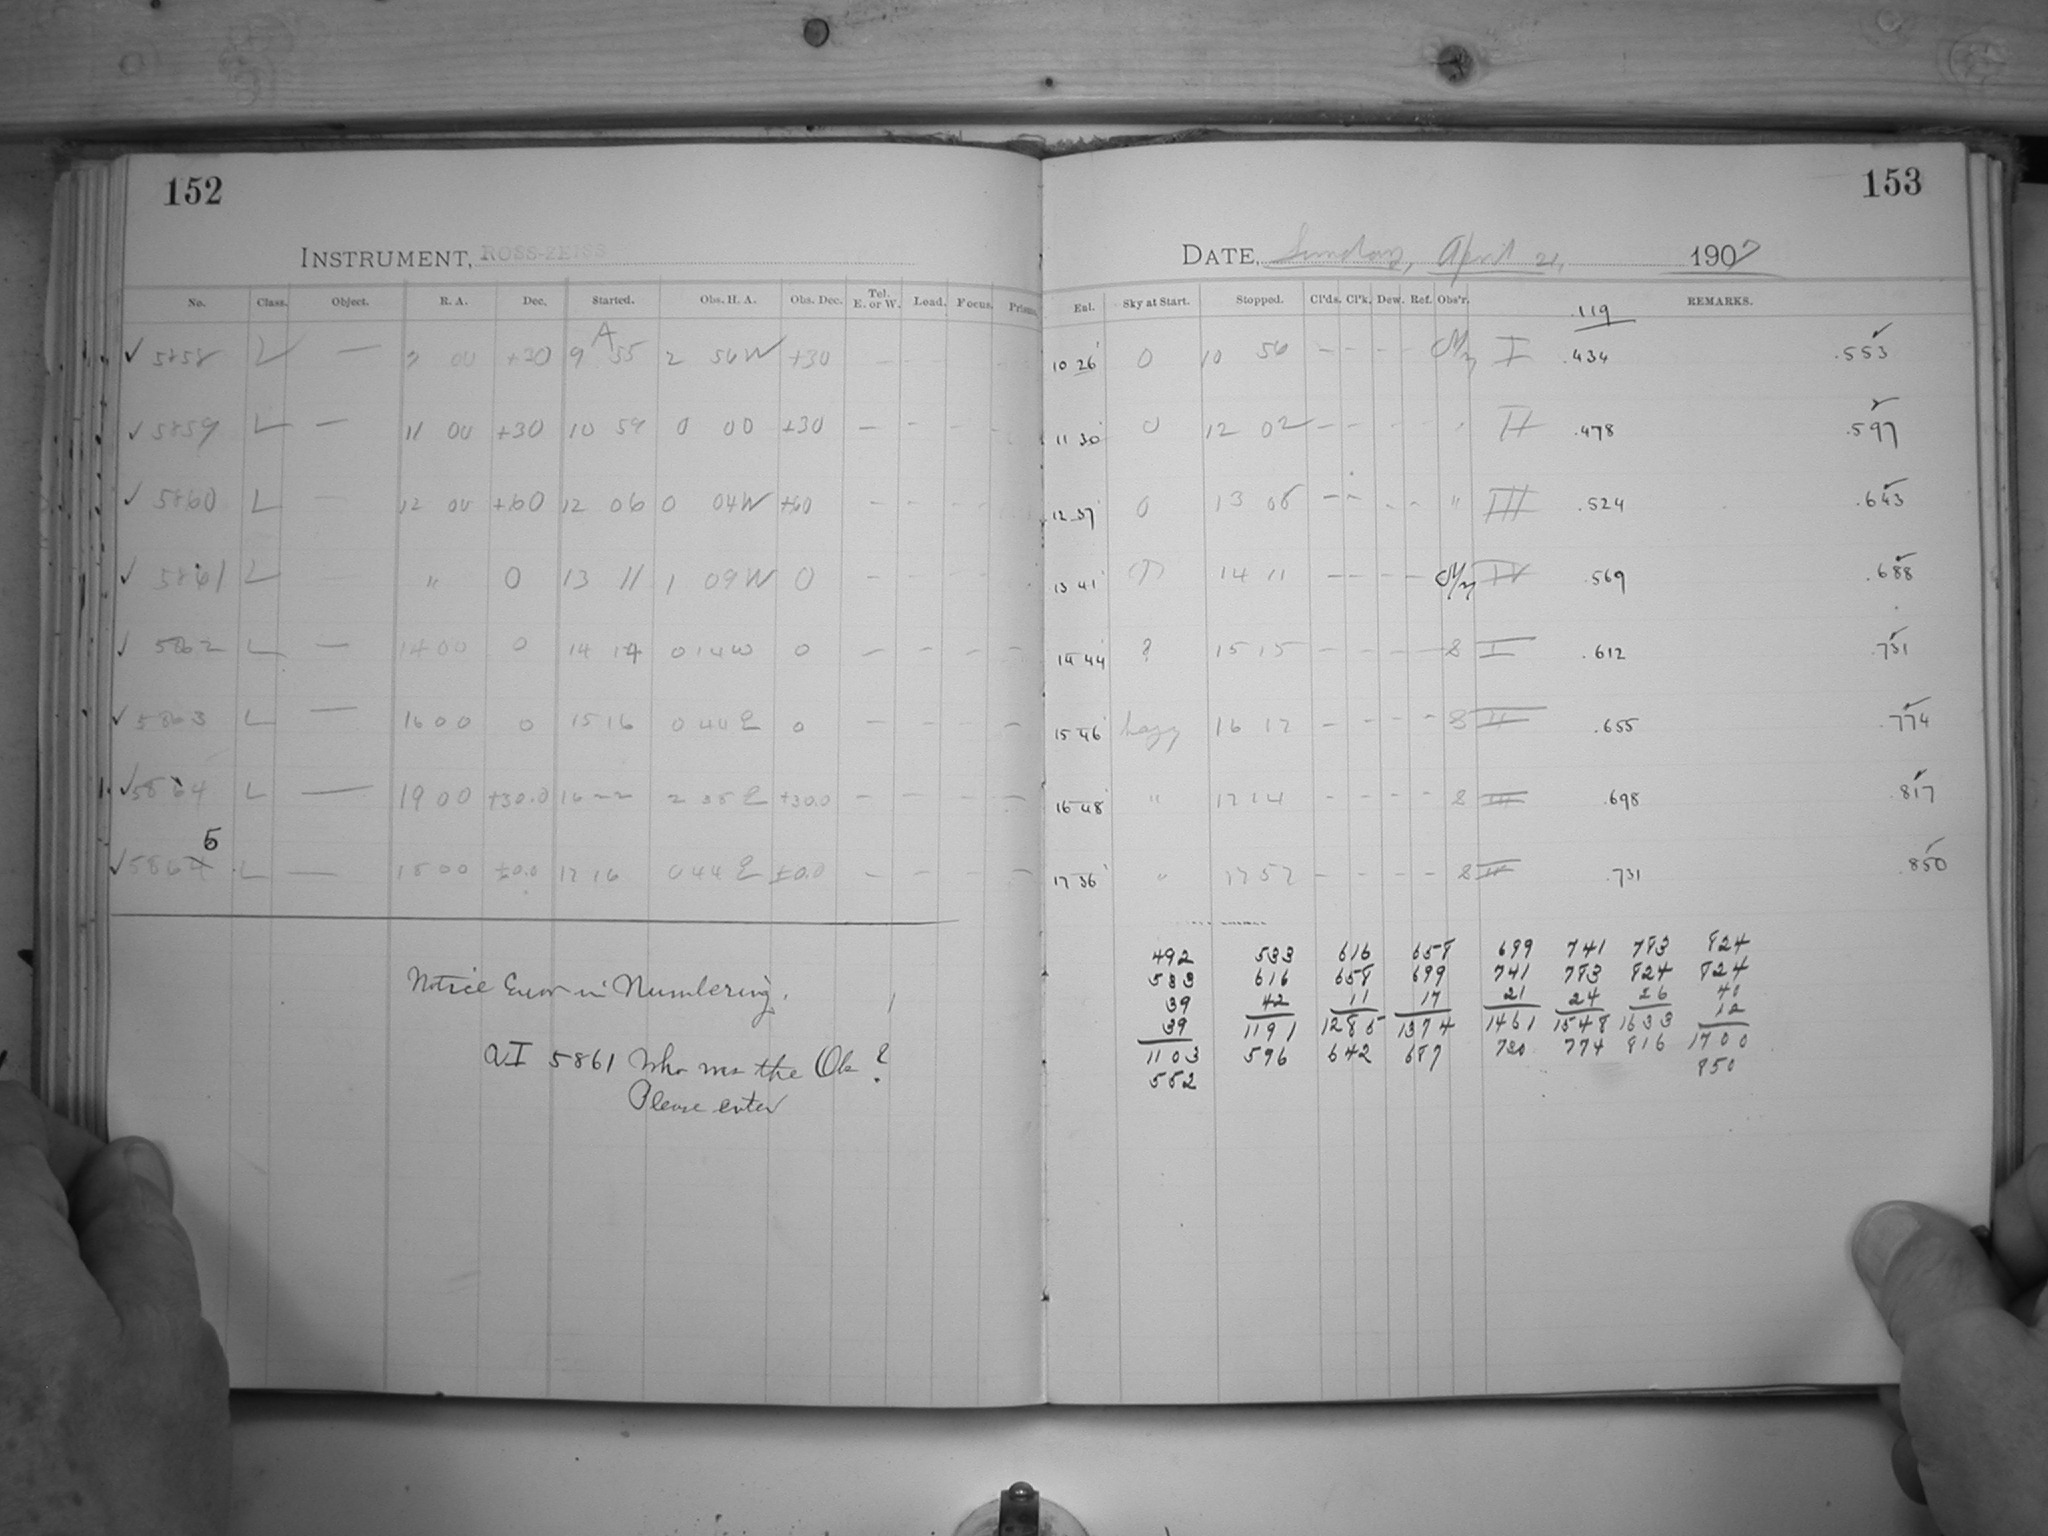 152
INSTRUMENT, ROSS-ZEISS
No. Class. Object. R. A. Dec. Started. Obs. H. A. Obs. Dec. Tel. E. or W. Load. Focus. Prisms.
A
✓ 5858 L — 00 +30 9 55 2 56 W +30 — — — —
✓ 5859 L — 11 00 +30 10 59 0 00 +30 — — — —
✓ 5860 L — 12 00 +60 12 06 0 04 W +60 — — — —
✓ 5861 L — " 0 13 11 1 09 W 0 — — — —
✓ 5862 L — 14 00 0 14 14 0 14 W 0 — — — —
✓ 5863 L — 16 00 0 15 16 0 44 E 0 — — — —
✓ 5864 L — 19 00 +30.0 16 22 2 38 E +30.0 — — — —
5
✓ 5864 L — 18 00 ±0.0 17 16 0 44 E ±0.0 — — — —
Notice Error in Numbering.
AI 5861 Who was the Obs?
Please enter
153
DATE, Sunday, April 21, 1907
Eal. Sky at Start. Stopped. Cl'ds. Cl'k. Dew. Ref. Obs'r. REMARKS.
.119
10 26 0 10 56 — — — — I .434 .553 ✓
11 30 0 12 02 — — — — " II .478 .597 ✓
12 37 0 13 08 — — — — " III .524 .643 ✓
13 41 14 11 — — — — IV .569 .688 ✓
14 44 ? 15 15 — — — — 8 I .612 .731 ✓
15 46 hazy 16 17 — — — — 8 II .655 .774 ✓
16 48 " 17 14 — — — — 8 III .698 .817 ✓
17 36 " 17 57 — — — — 8 IV .731 .850 ✓
492 533 616 658 699 741 783 824
533 616 658 699 741 783 824 824
39 42 11 17 21 24 26 40
39 1191 1285 1374 1461 1548 1633 12
1103 596 642 687 730 774 816 1700
552 850